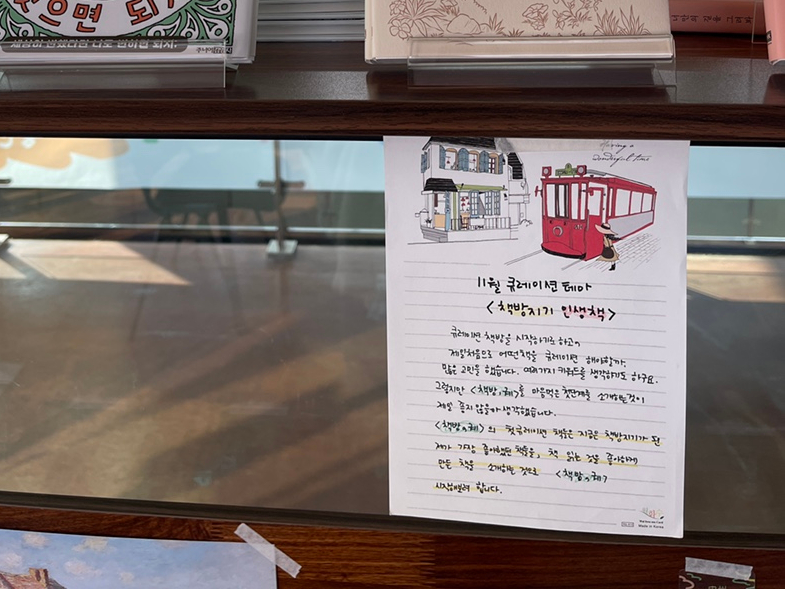 으면 되
Having a
wonderful time
11월 큐레이션 테마
<책방지기 인생책>
큐레이션 책방을 시작하기로 하고,
제일처음으로 어떤책을 큐레이션 해야할까,
많은 고민을 했습니다. 여러가지 키워드를 생각하기도 하구요.
그렇지만 <책방,궤>를 마음먹은 첫단계를 소개하는것이
제일 좋지 않을까 생각했습니다.
<책방,궤>의 첫큐레이션 책들은 지금은 책방지기가 된
제가 가장 좋아했던 책들을, 책 읽는 것을 좋아하게
만든 책을 소개하는 것으로 <책방,궤>
시작해보려 합니다.
Made in Korea